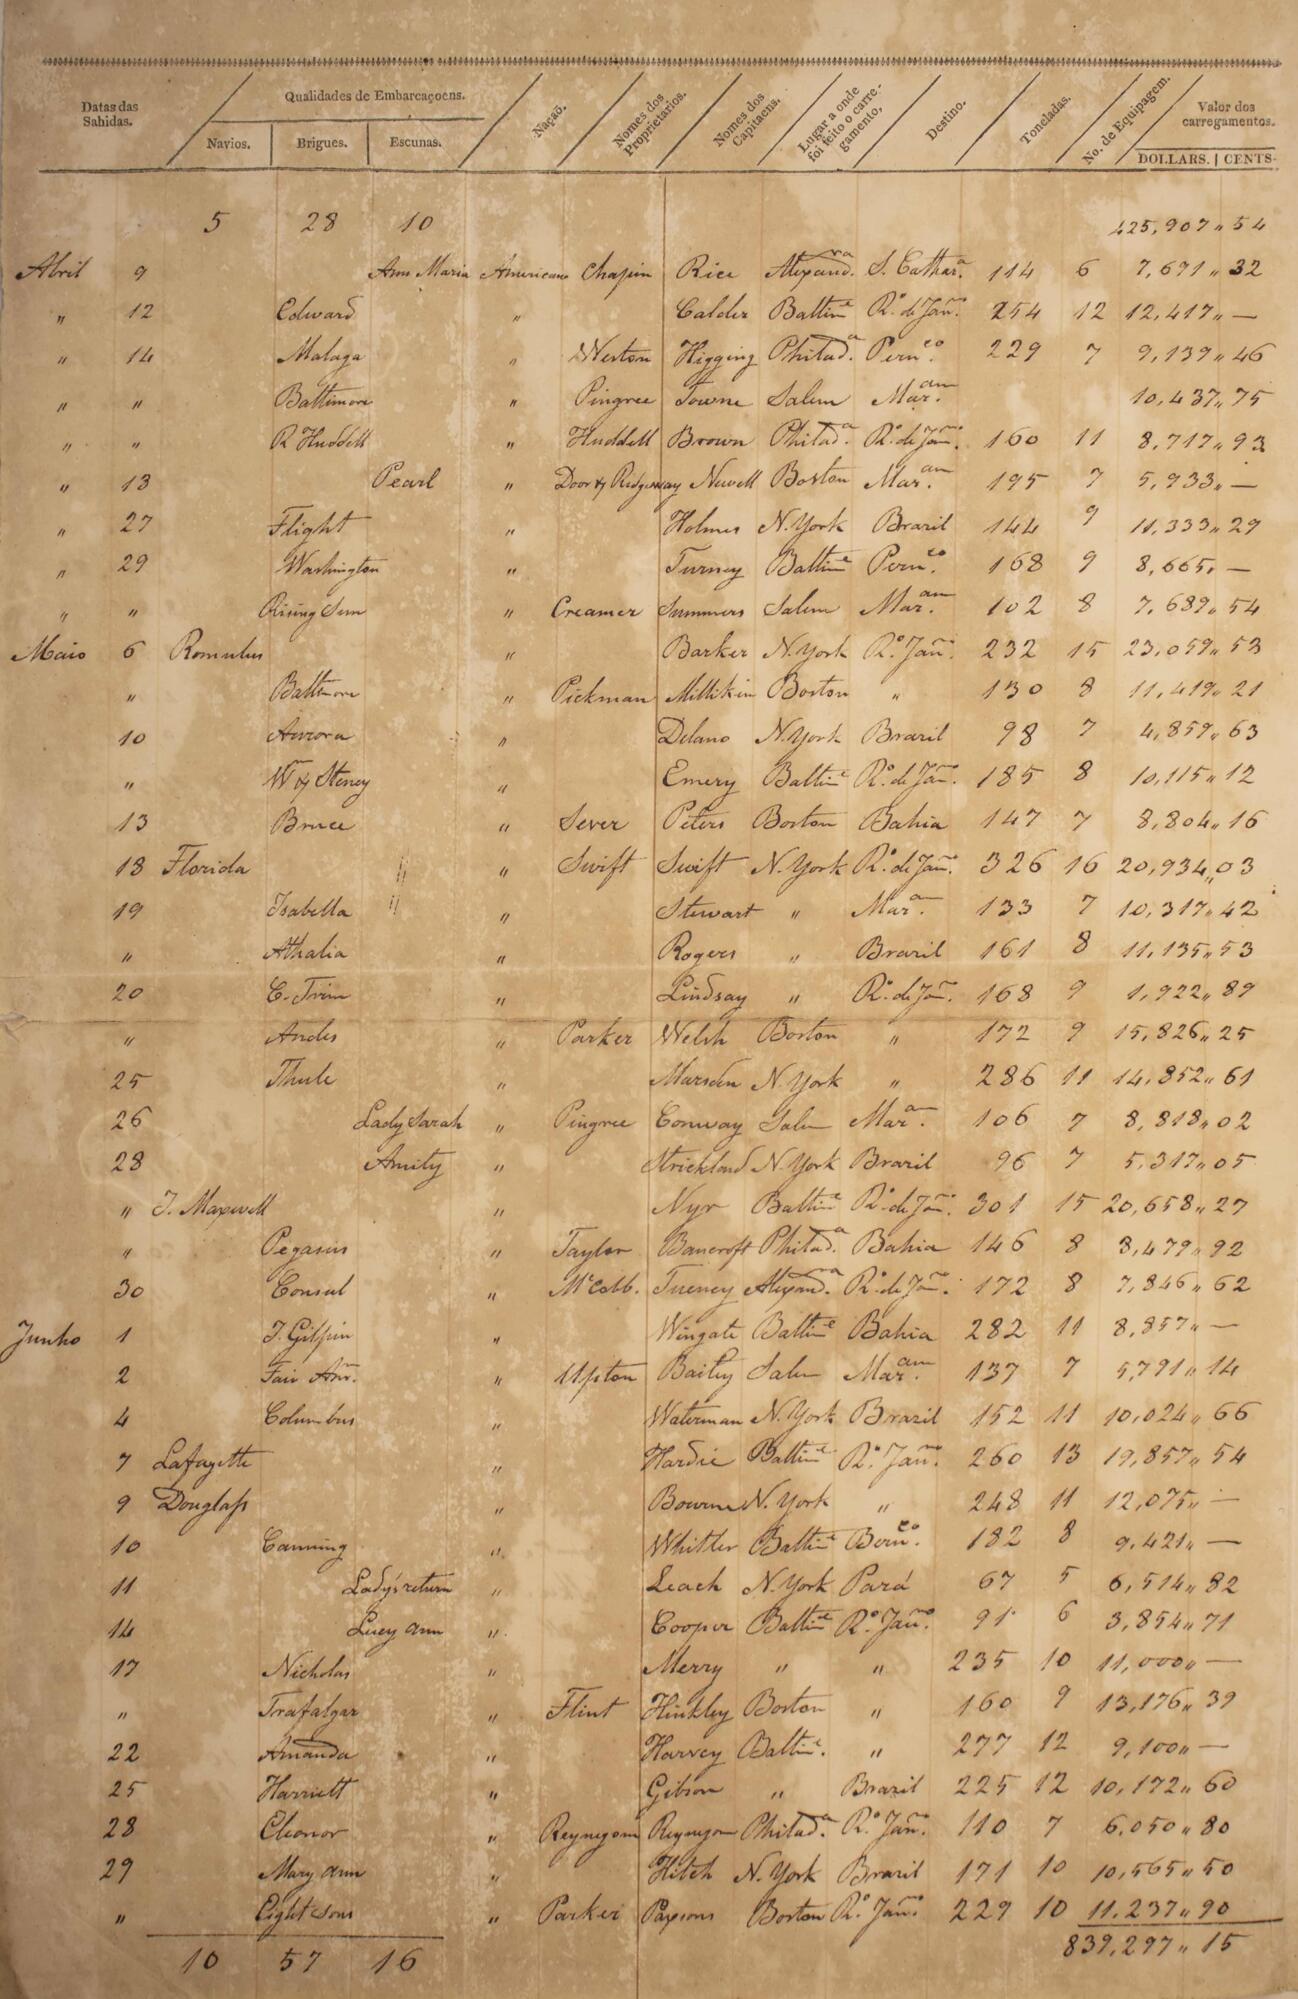 Datas das Sahidas. Qualidades de Embarcaçoens. Navios. Brigues. Escunas. Naçaõ. Nomes dos Proprietarios. Nomes dos Capitaens. Lugar a onde foi feito o carregamento, Destino. Toneladas. No. de Equipagem. Valor dos carregamentos. DOLLARS. | CENTS.
5 28 10 425,907 〃 54
Abril 9 Ann Maria Americano Chapin Rice Alexand.ra S. Cathar.a 114 6 7,671 〃 32
〃 12 Edward 〃 Calder Baltim.e R.o de Jan.ro 254 12 12,417 〃 —
〃 14 Malaga 〃 Weston Higging Philad.a Pern.co 229 7 9,139 〃 46
〃 〃 Baltimore 〃 Pingree Towne Salem Mar.am 10,437 〃 75
〃 〃 R Huddell 〃 Huddell Brown Philad.a R.o de Jan.ro 160 11 8,717 〃 93
〃 13 Pearl 〃 Door & Ridgeway Newell Boston Mar.am 195 7 5,933 〃 —
〃 27 Flight 〃 Holmes N. York Brazil 144 9 11,333 〃 29
〃 29 Washington 〃 Turney Baltim.e Pern.co 168 9 8,665 〃 —
〃 〃 Rising Sun 〃 Creamer Summers Salem Mar.am 102 8 7,689 〃 54
Maio 6 Romulus 〃 Barker N. York R.o Jan.ro 232 15 23,059 〃 53
〃 Baltimore 〃 Pickman Millikin Boston 〃 130 8 11,419 〃 21
10 Aurora 〃 Delano N. York Brazil 98 7 4,859 〃 63
〃 Wm & Steney 〃 Emery Baltim.e R.o de Jan.ro 185 8 10,115 〃 12
13 Bruce 〃 Sever Peters Boston Bahia 147 7 8,804 〃 16
18 Florida 〃 Swift Swift N. York R.o de Jan.ro 326 16 20,934 〃 03
19 Isabella 〃 Stewart 〃 Mar.am 133 7 10,317 〃 42
〃 Athalia 〃 Rogers 〃 Brazil 161 8 11,135 〃 53
20 C. Trim 〃 Lindsay 〃 R.o de Jan.ro 168 9 1,922 〃 89
〃 Andes 〃 Parker Welsh Boston 〃 172 9 15,826 〃 25
25 Thule 〃 Marsden N. York 〃 286 11 14,852 〃 61
26 Lady Sarah 〃 Pingree Conway Salem Mar.am 106 7 8,818 〃 02
28 Amity 〃 Strickland N. York Brazil 96 7 5,317 〃 05
〃 J. Maxwell 〃 Nyr Baltim.e R.o de Jan.ro 301 15 20,658 〃 27
〃 Pegasus 〃 Taylor Bancroft Philad.a Bahia 146 8 3,479 〃 92
30 Consul 〃 McCobb. Tueney Alexand.ra R.o de Jan.ro 172 8 7,846 〃 62
Junho 1 T. Gilpin 〃 Wingate Baltim.e Bahia 282 11 8,857 〃 —
2 Fair Am. 〃 Upton Bailey Salem Mar.am 137 7 5,791 〃 14
4 Columbus 〃 Waterman N. York Brazil 152 11 10,024 〃 66
7 Lafayette 〃 Hardie Baltim.e R.o Jan.ro 260 13 19,857 〃 54
9 Douglass 〃 Bourne N. York 〃 248 11 12,075 〃 —
10 Canning 〃 Whitler Baltim.e Pern.co 182 8 9,421 〃 —
11 Lady's return 〃 Leach N. York Pará 67 5 6,514 〃 82
14 Lucy Ann 〃 Cooper Baltim.e R.o Jan.ro 91 6 3,854 〃 71
17 Nicholas 〃 Merry 〃 〃 235 10 11,000 〃 —
〃 Trafalgar 〃 Flint Hinkley Boston 〃 160 9 13,176 〃 39
22 Amanda 〃 Harvey Baltim.e 〃 277 12 9,100 〃 —
25 Harriett 〃 Gibson 〃 Brazil 225 12 10,172 〃 60
28 Eleonor 〃 Reynegom Reynegom Philad.a R.o Jan.ro 110 7 6,050 〃 80
29 Mary Ann 〃 Hitch N. York Brazil 171 10 10,565 〃 50
〃 Eight Sons 〃 Parker Paysons Boston R.o Jan.ro 229 10 11.237 〃 90
10 57 16 839,297 〃 15